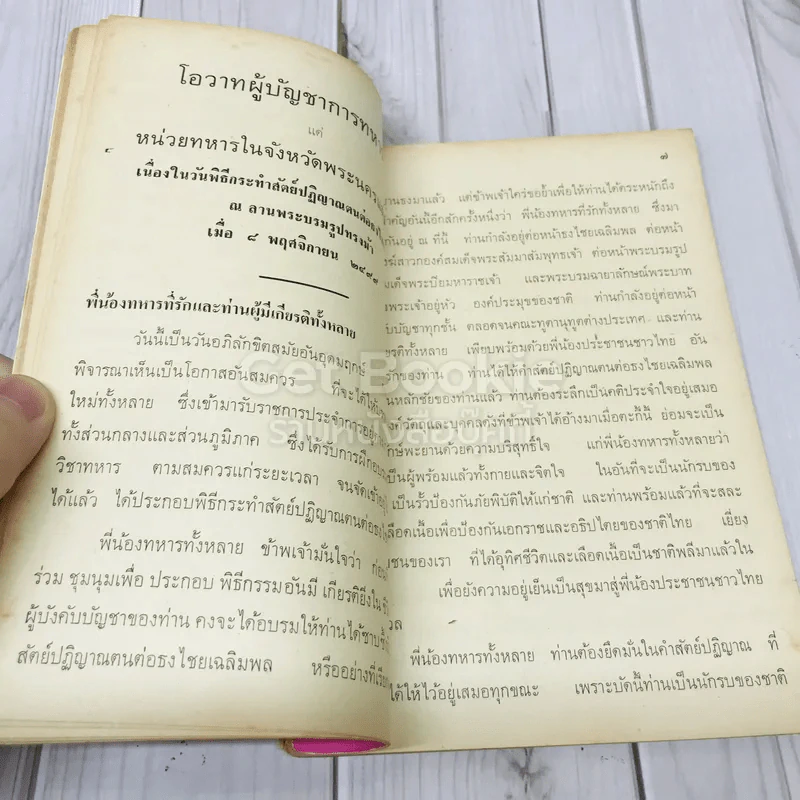 โอวาทผู้บัญชาการทหา
แด่
หน่วยทหารในจังหวัดพระนคร
เนื่องในวันพิธีกระทำสัตย์ปฏิญาณตนต่อ
ณ ลานพระบรมรูปทรงม้า
เมื่อ ๘ พฤศจิกายน
พี่น้องทหารที่รักและท่านผู้มีเกียรติทั้งหลาย
วันนี้เป็นวันอภิลักขิตสมัยอันอุดมฤกษ์
พิจารณาเห็นเป็นโอกาสอันสมควร ที่จะได้ให้
ใหม่ทั้งหลาย ซึ่งเข้ามารับราชการประจำการอยู่
ทั้งส่วนกลางและส่วนภูมิภาค ซึ่งได้รับการฝึกอบ
วิชาทหาร ตามสมควรแก่ระยะเวลา จนจัดเข้า
ได้แล้ว ได้ประกอบพิธีกระทำสัตย์ปฏิญาณตนต่อธง
พี่น้องทหารทั้งหลาย ข้าพเจ้ามั่นใจว่า ก่อน
ร่วม ชุมนุมเพื่อ ประกอบ พิธีกรรมอันมี เกียรติยิ่งใน
ผู้บังคับบัญชาของท่าน คงจะได้อบรมให้ท่านได้ซาบซึ้ง
สัตย์ปฏิญาณตนต่อธงไชยเฉลิมพล หรืออย่างที่เรีย
๗
านธงมาแล้ว แต่ข้าพเจ้าใคร่ขอย้ำเพื่อให้ท่านได้ตระหนักถึง
ำคัญอันนี้อีกสักครั้งหนึ่งว่า พี่น้องทหารที่รักทั้งหลาย ซึ่งมา
กันอยู่ ณ ที่นี้ ท่านกำลังอยู่ต่อหน้าธงไชยเฉลิมพล ต่อหน้า
ฆ์สาวกองค์สมเด็จพระสัมมาสัมพุทธเจ้า ต่อหน้าพระบรมรูป
เด็จพระปิยมหาราชเจ้า และพระบรมฉายาลักษณ์พระบาท
พระเจ้าอยู่หัว องค์ประมุขของชาติ ท่านกำลังอยู่ต่อหน้า
บบัญชาทุกชั้น ตลอดจนคณะทูตานุทูตต่างประเทศ และท่าน
ยรติทั้งหลาย เพียบพร้อมด้วยพี่น้องประชาชนชาวไทย อัน
รักของท่าน ท่านได้ให้คำสัตย์ปฏิญาณตนต่อธงไชยเฉลิมพล
นหลักชัยของท่านแล้ว ท่านต้องระลึกเป็นคติประจำใจอยู่เสมอ
งควัตถุและบุคคลดังที่ข้าพเจ้าได้อ้างมาเมื่อตะกี้นี้ ย่อมจะเป็น
กษีพะยานด้วยความบริสุทธิ์ใจ แก่พี่น้องทหารทั้งหลายว่า
เป็นผู้พร้อมแล้วทั้งกายและจิตใจ ในอันที่จะเป็นนักรบของ
เป็นรั้วป้องกันภัยพิบัติให้แก่ชาติ และท่านพร้อมแล้วที่จะสละ
เลือดเนื้อเพื่อป้องกันเอกราชและอธิปไตยของชาติไทย เยี่ยง
ชนของเรา ที่ได้อุทิศชีวิตและเลือดเนื้อเป็นชาติพลีมาแล้วใน
เพื่อยังความอยู่เย็นเป็นสุขมาสู่พี่น้องประชาชนชาวไทย
วล
พี่น้องทหารทั้งหลาย ท่านต้องยึดมั่นในคำสัตย์ปฏิญาณ ที่
ได้ให้ไว้อยู่เสมอทุกขณะ เพราะบัดนี้ท่านเป็นนักรบของชาติ